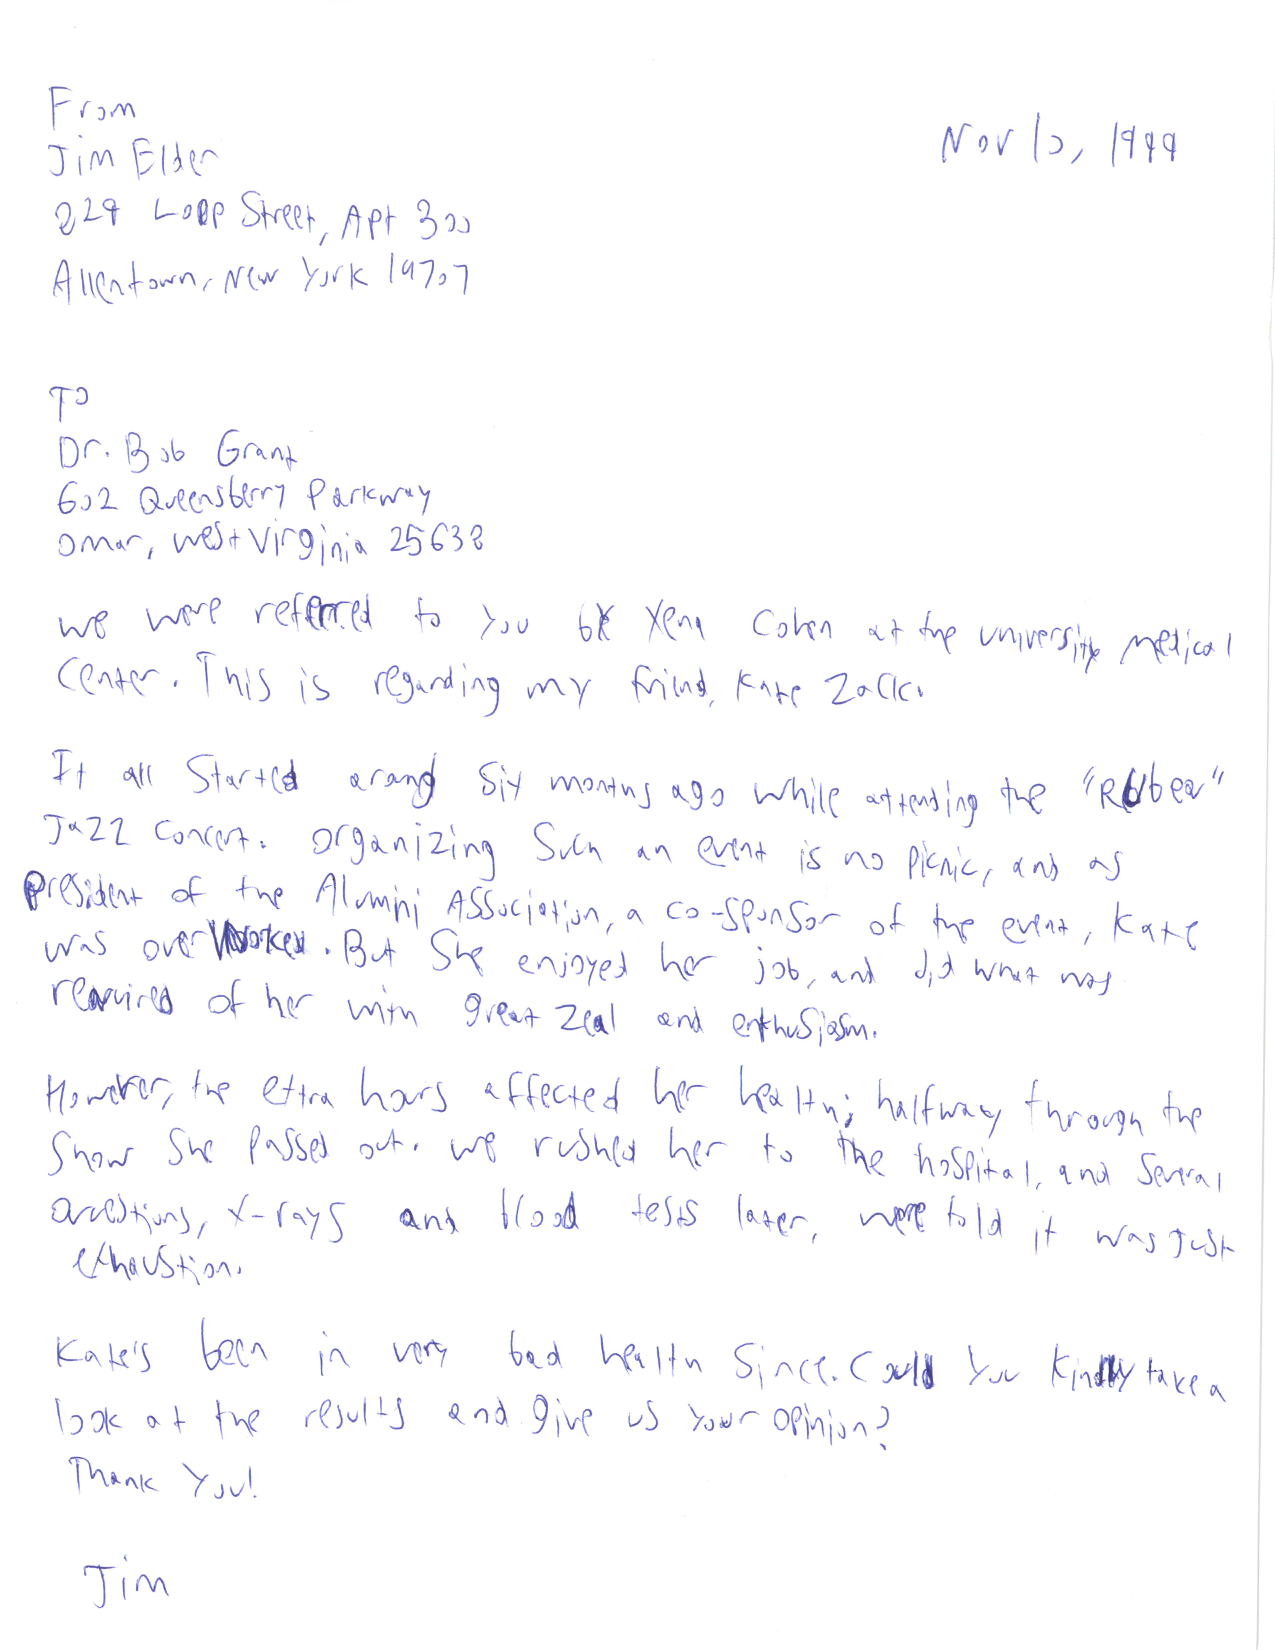 From
Nov 10, 1999
Jim Elder
829 Loop Street, Apt 300
Allentown, New York 14707
To
Dr. Bob Grant
602 Queensberry Parkway
Omar, West Virginia 25638
We were referred to you by Xena Cohen at the University Medical
Center. This is regarding my friend, Kate Zack.
It all started around six months ago while attending the "Rubeq"
Jazz Concert. Organizing such an event is no picnic, and as
President of the Alumni Association, a co-sponsor of the event, Kate
was overworked. But she enjoyed her job, and did what was
required of her with great zeal and enthusiasm.
However, the extra hours affected her health; halfway through the
show she passed out. We rushed her to the hospital, and several
questions, x-rays and blood tests later, were told it was just
exhaustion.
Kate's been in very bad health since. Could you kindly take a
look at the results and give us your opinion?
Thank you!
Jim